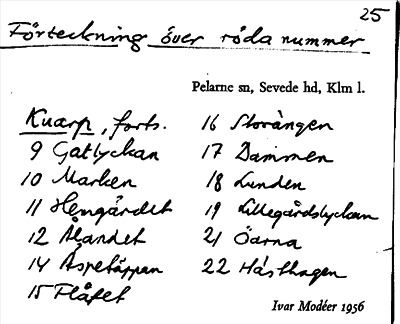 25
Förteckning över röda nummer
Pelarne sn, Sevede hd, Klm l.
Kuarp, forts.
9 Gatlyckan
10 Marken
11 Hemgärdet
12 Ålandet
14 Aspetäppan
15 Flåfet
16 Storängen
17 Dammen
18 Lunden
19 Lillegårdslyckan
21 Öarna
22 Hästhagen
Ivar Modéer 1956